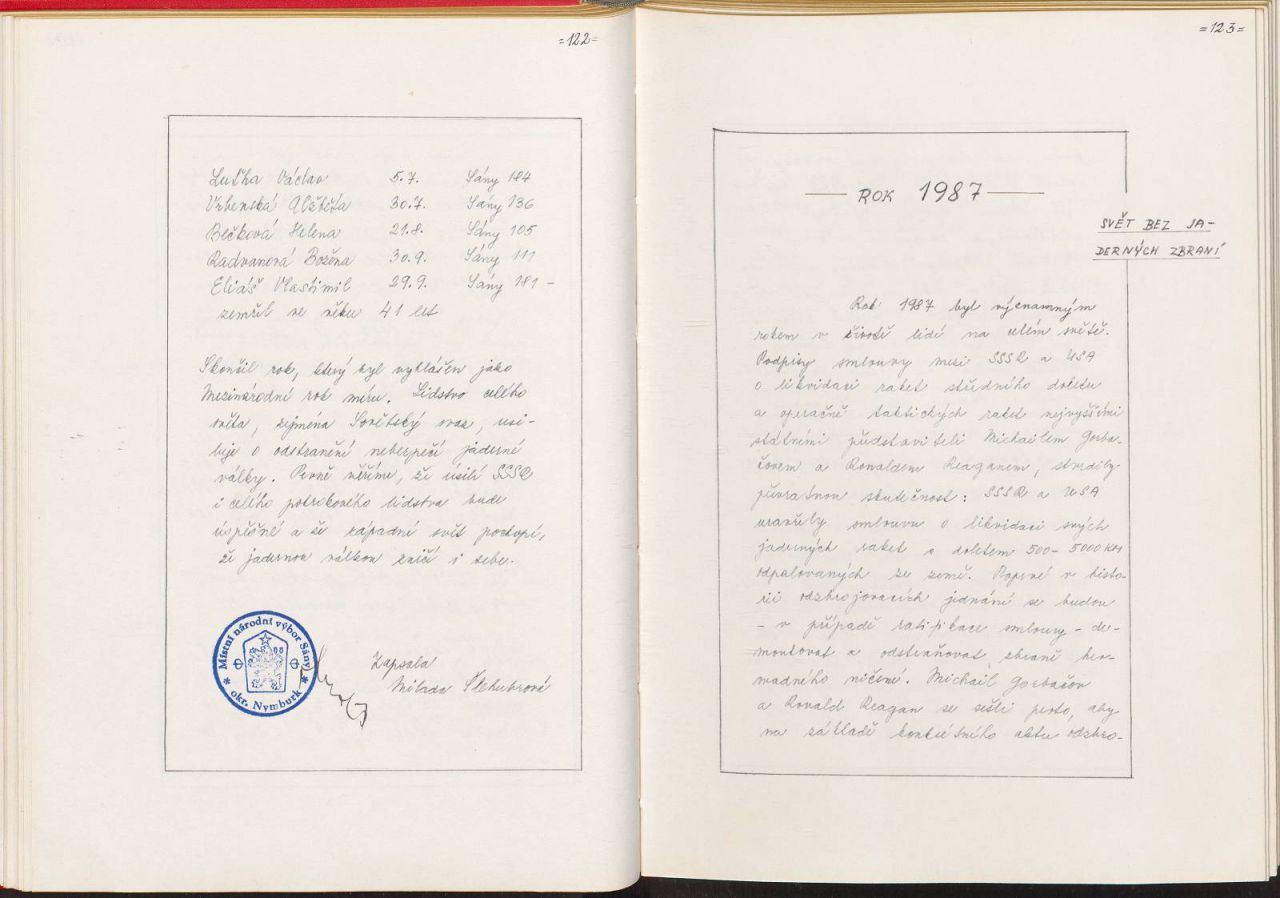 =122=
Luťha Václav 5.7. Sány 184
Vrbenská Alžběta 30.7. Sány 136
Bečková Helena 21.8. Sány 105
Radvanová Božena 30.9. Sány 111
Eliáš Vlastimil 29.9. Sány 181 -
zemřel ve věku 41 let
Skončil rok, který byl vyhlášen jako
Mezinárodní rok míru. Lidstvo celého
světa, zejména Sovětský svaz, usi-
luje o odstranění nebezpečí jaderné
války. Pevně věříme, že úsilí SSSR
i celého pokrokového lidstva bude
úspěšné a že západní svět pochopí,
že jadernou válkou zničí i sebe.
Místní národní výbor Sány
okr. Nymburk
Zapsala
Milada
=123=
ROK 1987
SVĚT BEZ JA-
DERNÝCH ZBRANÍ
Rok 1987 byl významným
rokem v životě lidí na celém světě.
Podpisy smlouvy mezi SSSR a USA
o likvidaci raket středního doletu
a operačně taktických raket nejvyššími
státními představiteli Michailem Gorba-
čovem a Ronaldem Reaganem, stvrdily
převratnou skutečnost: SSSR a USA
uzavřely smlouvu o likvidaci svých
jaderných raket s doletem 500-5000 KM
odpalovaných ze země. Poprvé v histo-
rii odzbrojovacích jednání se budou
- v případě ratifikace smlouvy - de-
montovat a odstraňovat zbraně hro-
madného ničení. Michail Gorbačov
a Ronald Reagan se sešli proto, aby
na základě konkrétního aktu odzbro-